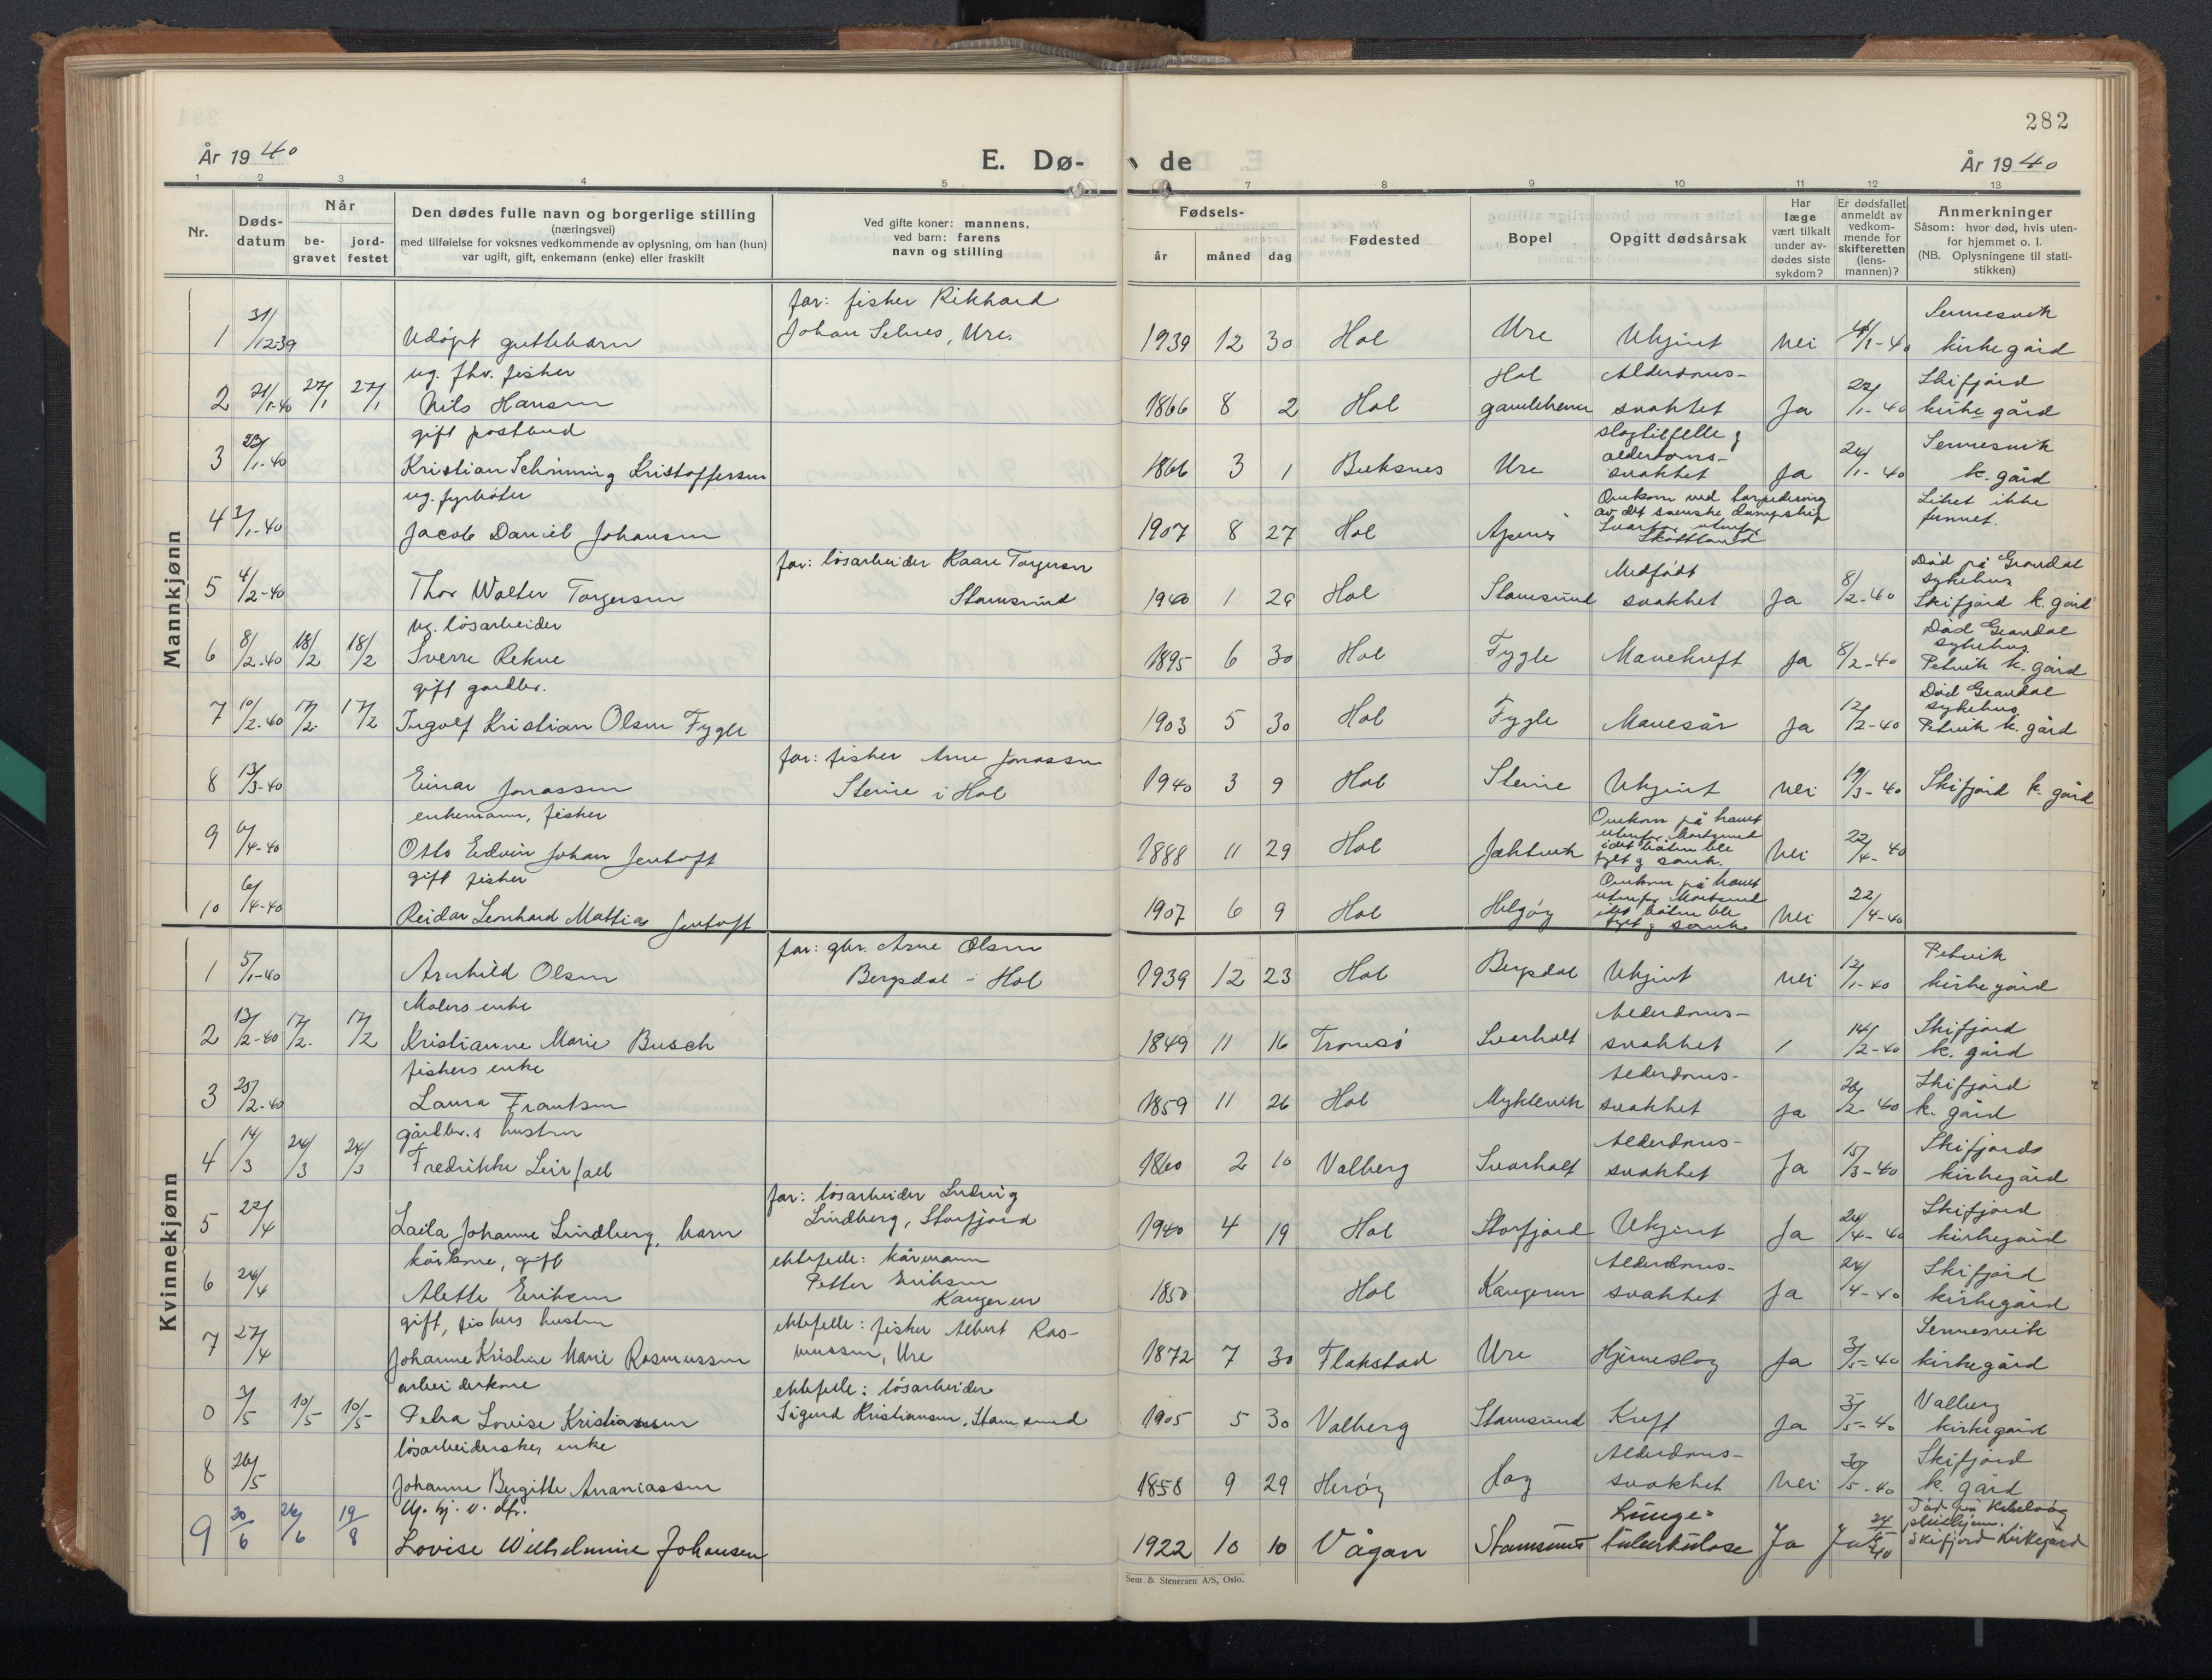 282
År 1940
E. Dø-
de
År 1940
1 2 3 4 5 7 8 9 10 11 12 13
Nr.
Døds-
datum
Når
be-
gravet
jord-
festet
Den dødes fulle navn og borgerlige stilling
(næringsvei)
med tilføielse for voksnes vedkommende av oplysning, om han (hun)
var ugift, gift, enkemann (enke) eller fraskilt
Ved gifte koner: mannens,
ved barn: farens
navn og stilling
Fødsels-
år måned dag
Fødested
Bopel
Opgitt dødsårsak
Har
læge
vært tilkalt
under av-
dødes siste
sykdom?
Er dødsfallet
anmeldt av
vedkom-
mende for
skifteretten
(lens-
mannen)?
Anmerkninger
Såsom: hvor død, hvis uten-
for hjemmet o. l.
(NB. Oplysningene til stati-
stikken)
Mannkjønn
1 31/12-39 Udøpt guttebarn
far: fisker Rikhard
Johan Selnes, Ure.
1939 12 30 Hol Ure Ukjent Nei 4/1-40
Sennesvik
kirkegård
ug. fhv. fisker
2 21/1-40 27/1 27/1 Nils Hansen
1866 8 2 Hol
Hol
gamlehem
Alderdoms-
svakhet
Ja 22/1-40
Skifjord
kirkegård
gift postbud
3 23/1-40 Kristian Schrining Kristoffersen
1866 3 1 Buksnes Ure
slagtilfelle og
alderdoms-
svakhet
Ja 24/1-40
Sennesvik
k. gård
ug. fyrbøter
4 3/1-40 Jacob Daniel Johansen
1907 8 27 Hol
Omkom ved torpedering
av det svenske dampskip
utenfor
Skottland
Liket ikke
funnet.
5 4/2-40 Thor Walter Torgersen
far: løsarbeider Kaare Torgersen
Stamsund
1940 1 29 Hol Stamsund
Medfødt
svakhet
Ja 8/2-40
Død på Gravdal
sykehus
Skifjord k. gård
ug. løsarbeider
6 8/2-40 18/2 18/2 Sverre Rekve
1895 6 30 Hol Fygle Mavekreft Ja 8/2-40
Død Gravdal
sykehus
Petvik k. gård
gift gardbr.
7 10/2-40 17/2. 17/2 Ingolf Kristian Olsen Fygle
1903 5 30 Hol Fygle Mavesår Ja 12/2-40
Død Gravdal
sykehus
Petvik k. gård
8 13/3-40 Einar Jonassen
far: fisker Arne Jonassen
Steine i Hol
1940 3 9 Hol Steine Ukjent Nei 19/3-40 Skifjord k. gård
enkemann, fisker
9 6/4-40 Otto Edvin Johan Jentoft
1888 11 29 Hol Jaktvik
Omkom på havet
utenfor Mortsund
idet båten ble
fylt og sank.
Nei 22/4-40
gift fisker
10 6/4-40 Reidar Lenhard Mattias Jentoft
1907 6 9 Hol Helgøy
Omkom på havet
utenfor Mortsund
idet båten ble
fylt og sank
Nei 22/4-40
Kvinnekjønn
1 5/1-40 Arnhild Olsen
far: gbr. Arne Olsen
Bergsdal - Hol
1939 12 23 Hol Bergsdal Ukjent Nei 12/1-40
Petvik
kirkegård
Malers enke
2 13/2-40 17/2. 17/2 Kristianne Marie Busch
1849 11 16 Tromsø Svarholt
Alderdoms-
svakhet
/ 14/2-40
Skifjord
k. gård
fiskers enke
3 25/2-40 Laura Frantsen
1859 11 26 Hol Myklevik
Alderdoms-
svakhet
Ja 26/2-40
Skifjord
k. gård
gårdbr.s hustru
4 14/3 24/3 24/3 Fredrikke Leirfall
1860 2 10 Valberg Svarholt
Alderdoms-
svakhet
Ja 15/3-40
Skifjords
kirkegård
5 22/4 Laila Johanne Lindberg, barn
far: løsarbeider Ludvig
Lindberg, Storfjord
1940 4 19 Hol Storfjord Ukjent Ja 24/4-40
Skifjord
kirkegård
kårkone, gift
6 24/4 Alette Eriksen
ektefelle: kårmann
Petter Eriksen
Kangerur
1850 Hol Kangerur
Alderdoms-
svakhet
Ja 24/4-40
Skifjord
kirkegård
gift, fiskers hustru
7 27/4 Johanne Kristine Marie Rasmussen
ektefelle: fisker Albert Ras-
mussen, Ure
1872 7 30 Flakstad Ure Hjerneslag Ja 3/5-40
Sennesvik
kirkegård
arbeiderkone
0 3/5 10/5 10/5 Petra Lovise Kristiansen
ektefelle: løsarbeider
Sigurd Kristiansen, Stamsund
1905 5 30 Valberg Stamsund Kreft Ja 3/5-40
Valberg
kirkegård
løsarbeiderske, enke
8 26/5 Johanne Bergitte Ananiassen
1858 9 29 Herøy Hag
Alderdoms-
svakhet
Nei 30/5-40
Skifjord
k. gård
9 20/6 26/6 19/8 Lovise Wilhelmine Johansen
1922 10 10 Vågan Stamsund
Lunge-
tuberkulose
Ja Ja 24/6-40
Død på Kabelvåg
pleiehjem.
Skifjord Kirkegård
Sem & Stenersen A/S, Oslo.